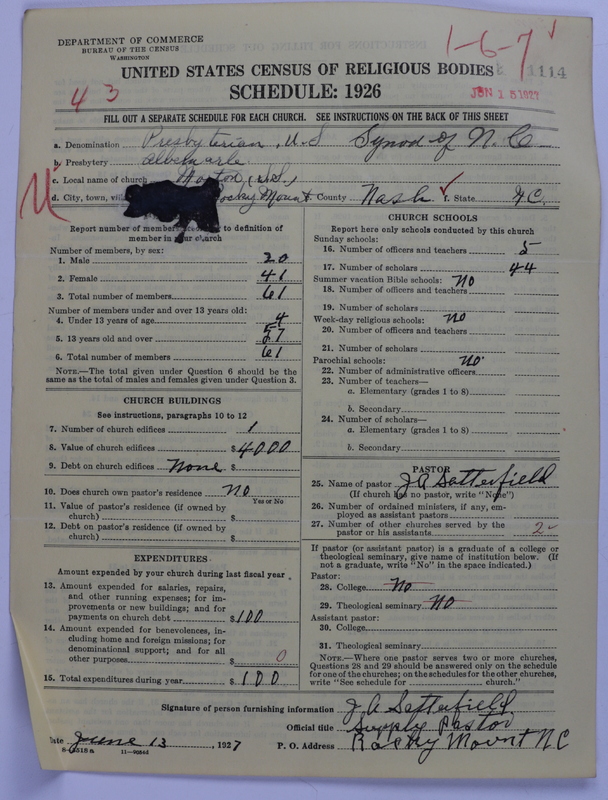 DEPARTMENT OF COMMERCE
BUREAU OF THE CENSUS
WASHINGTON
1-6-7
1114
UNITED STATES CENSUS OF RELIGIOUS BODIES
SCHEDULE: 1926
43
JUN 15 1927
FILL OUT A SEPARATE SCHEDULE FOR EACH CHURCH. SEE INSTRUCTIONS ON THE BACK OF THIS SHEET
a. Denomination Presbyterian, U.S Synod of N.C
b. Presbytery Albemarle
c. Local name of church (U.S.)
d. City, town, vil Rocky Mount County Nash f. State N.C.
Report number of members according to definition of
member in your church
Number of members, by sex:
1. Male 20
2. Female 41
3. Total number of members 61
Number of members under and over 13 years old:
4. Under 13 years of age 4
5. 13 years old and over 57
6. Total number of members 61
NOTE.—The total given under Question 6 should be
same as the total of males and females given under Question 3.
CHURCH BUILDINGS
See instructions, paragraphs 10 to 12
7. Number of church edifices 1
8. Value of church edifices $4000
9. Debt on church edifices None $
10. Does church own pastor's residence No
Yes or No
11. Value of pastor's residence (if owned by
church) $
12. Debt on pastor's residence (if owned by
church) $
EXPENDITURES
Amount expended by your church during last fiscal year
13. Amount expended for salaries, repairs,
and other running expenses; for im-
provements or new buildings; and for
payments on church debt $100
14. Amount expended for benevolences, in-
cluding home and foreign missions; for
denominational support; and for all
other purposes $ 0
15. Total expenditures during year $100
CHURCH SCHOOLS
Report here only schools conducted by this church
Sunday schools:
16. Number of officers and teachers 5
17. Number of scholars 44
Summer vacation Bible schools: No
18. Number of officers and teachers
19. Number of scholars
Week-day religious schools: No
20. Number of officers and teachers
21. Number of scholars
Parochial schools: No
22. Number of administrative officers
23. Number of teachers—
a. Elementary (grades 1 to 8)
b. Secondary
24. Number of scholars—
a. Elementary (grades 1 to 8)
b. Secondary
PASTOR
25. Name of pastor J A Satterfield
(If church has no pastor, write "None")
26. Number of ordained ministers, if any, em-
ployed as assistant pastors
27. Number of other churches served by the
pastor or his assistants 2
If pastor (or assistant pastor) is a graduate of a college or
theological seminary, give name of institution below. (If
not a graduate, write "No" in the space indicated.)
Pastor:
28. College No
29. Theological seminary No
Assistant pastor:
30. College
31. Theological seminary
NOTE.—Where one pastor serves two or more churches,
Questions 28 and 29 should be answered only on the schedule
for one of the churches; on the schedules for the other churches,
write "See schedule for church."
Signature of person furnishing information J A Satterfield
Official title Supply Pastor
Date June 13, 1927 P. O. Address Rocky Mount N C